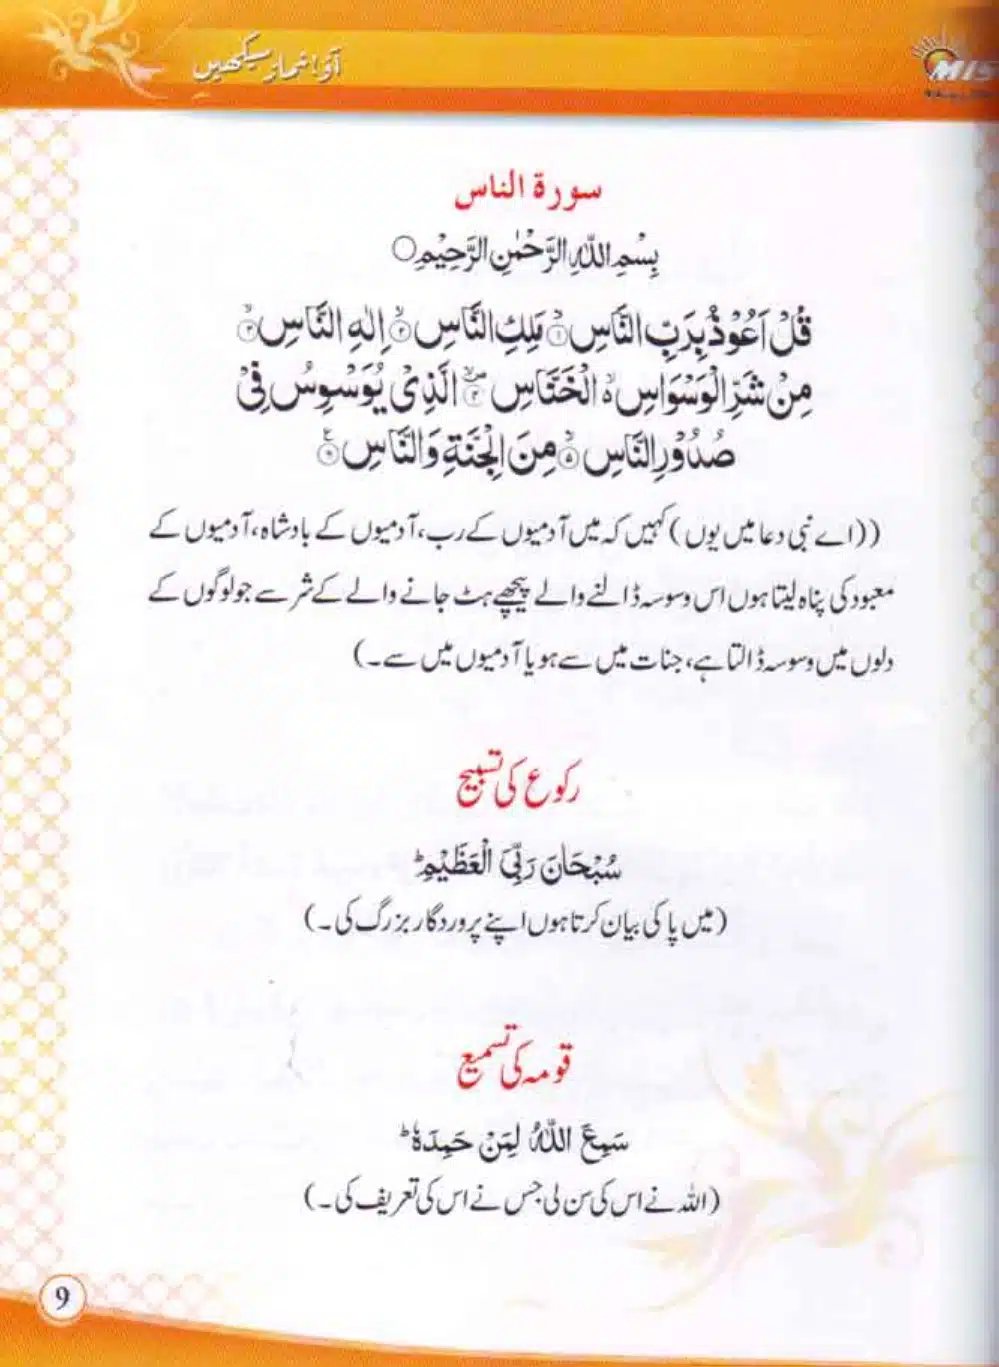 آؤ! نماز سیکھیں
MIS
سورۃ الناس
بِسْمِ اللّٰہِ الرَّحْمٰنِ الرَّحِیْمِ ○
قُلْ اَعُوْذُ بِرَبِّ النَّاسِ ۙ﴿۱﴾ مَلِكِ النَّاسِ ۙ﴿۲﴾ اِلٰهِ النَّاسِ ۙ﴿۳﴾
مِنْ شَرِّ الْوَسْوَاسِ ۙ۬ الْخَنَّاسِ ۪ۙ﴿۴﴾ الَّذِیْ یُوَسْوِسُ فِیْ
صُدُوْرِ النَّاسِ ۙ﴿۵﴾ مِنَ الْجِنَّةِ وَ النَّاسِ ۧ﴿۶﴾
((اے نبی دعا میں یوں) کہیں کہ میں آدمیوں کے رب، آدمیوں کے بادشاہ، آدمیوں کے
معبود کی پناہ لیتا ہوں اس وسوسہ ڈالنے والے پیچھے ہٹ جانے والے کے شر سے جو لوگوں کے
دلوں میں وسوسہ ڈالتا ہے، جنات میں سے ہو یا آدمیوں میں سے۔)
رکوع کی تسبیح
سُبْحَانَ رَبِّیَ الْعَظِیْمِ ؕ
(میں پاکی بیان کرتا ہوں اپنے پروردگار بزرگ کی۔)
قومہ کی تسمیع
سَمِعَ اللّٰہُ لِمَنْ حَمِدَہٗ ؕ
(اللہ نے اس کی سن لی جس نے اس کی تعریف کی۔)
9